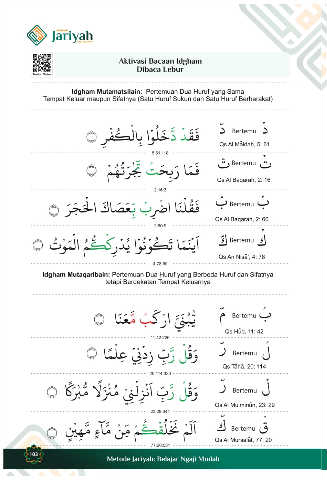 Jariyah
Aktivasi Bacaan Idgham
Dibaca Lebur
Idgham Mutamatsilain: Pertemuan Dua Huruf yang Sama
Tempat Keluar maupun Sifatnya (Satu Huruf Sukun dan Satu Huruf Berharakat)
فَقَدْ دَّخَلُوْا بِالْكُفْرِ
دْ Bertemu دّ
Qs Al Māidah, 5: 61
فَمَا رَبِحَتْ تِّجٰرَتُهُمْ
تْ Bertemu تّ
Qs Al Baqarah, 2: 16
فَقُلْنَا اضْرِبْ بِّعَصَاكَ الْحَجَرَ
بْ Bertemu بّ
Qs Al Baqarah, 2: 60
اَيْنَمَا تَكُوْنُوْا يُدْرِكْكُّمُ الْمَوْتُ
كْ Bertemu كّ
Qs An Nisā', 4: 78
Idgham Mutaqaribain: Pertemuan Dua Huruf yang Berbeda Huruf dan Sifatnya
tetapi Berdekatan Tempat Keluarnya
يّٰبُنَيَّ ارْكَبْ مَّعَنَا
بْ Bertemu مّ
Qs Hūd, 11: 42
وَقُلْ رَّبِّ زِدْنِيْ عِلْمًا
لْ Bertemu رّ
Qs Tāhā, 20: 114
وَقُلْ رَّبِّ اَنْزِلْنِيْ مُنْزَلًا مُّبٰرَكًا
لْ Bertemu رّ
Qs Al Mu'minūn, 23: 29
اَلَمْ نَخْلُقْكُّمْ مِّنْ مَّاۤءٍ مَّهِيْنٍ
قْ Bertemu كّ
Qs Al Mursalāt, 77: 20
103
Metode Jariyah: Belajar Ngaji Mudah